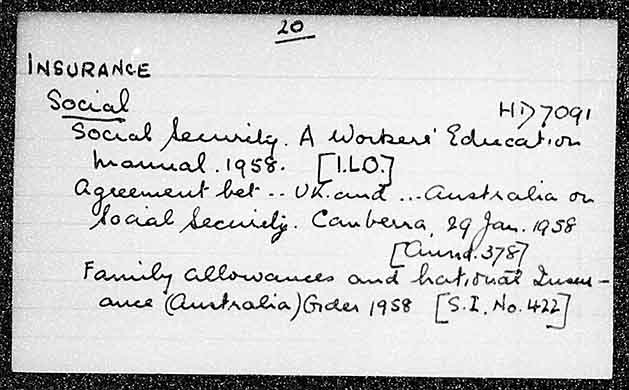 20
INSURANCE
Social
HD7091
Social Security. A Workers' Education
Manual. 1958. [I.L.O.]
Agreement bet .. U.K. and ... Australia on
Social Security. Canberra, 29 Jan. 1958
[Cmnd. 378]
Family allowances and national Insur-
ance (Australia) Order 1958 [S.I. No. 422]